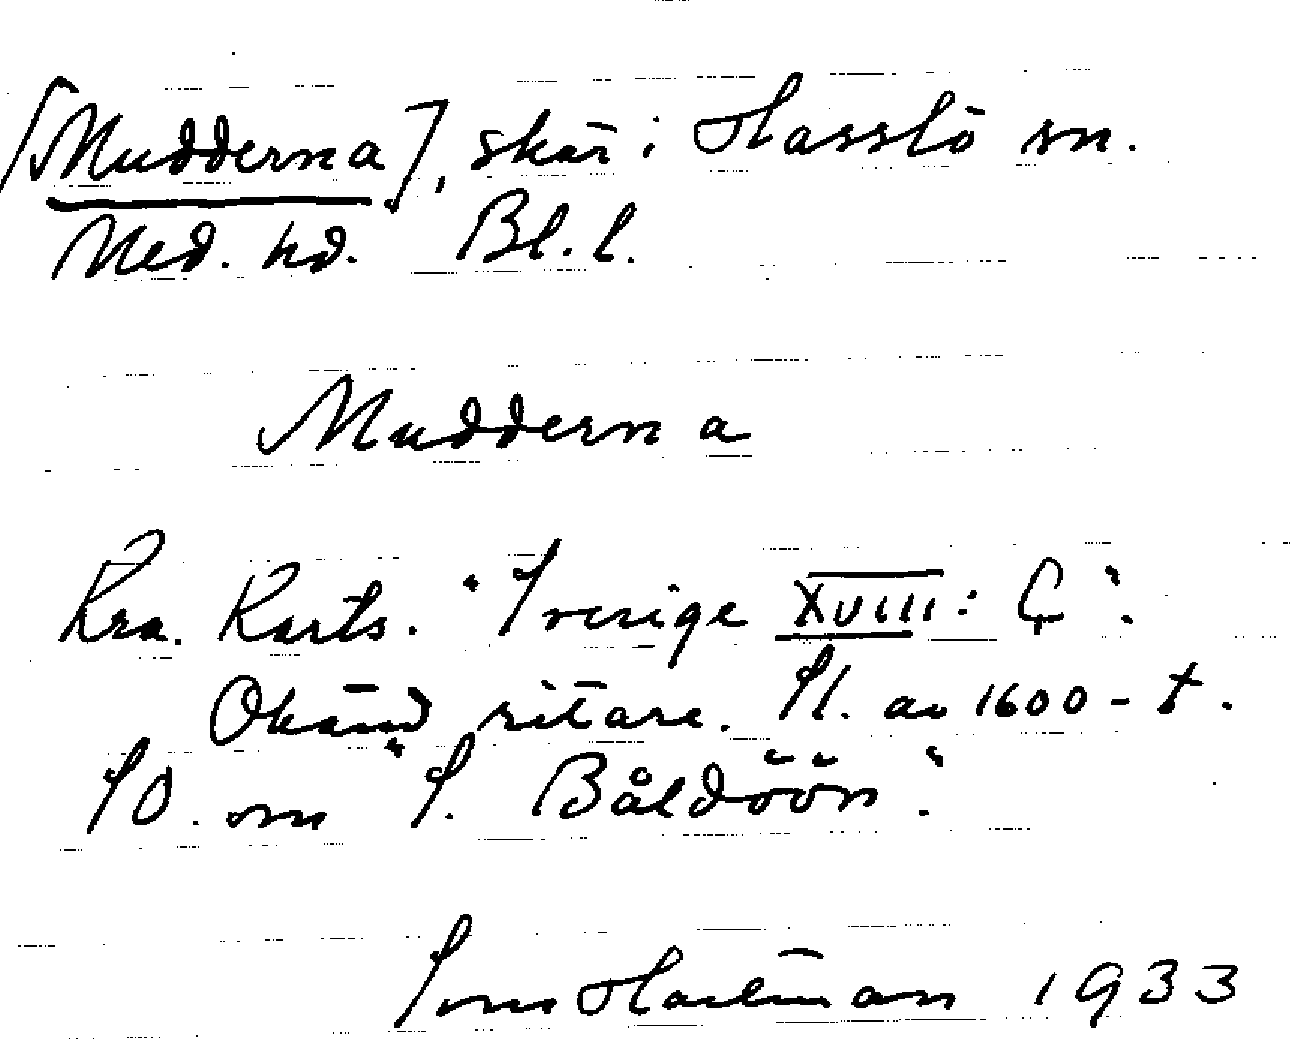 [Mudderna], skär i Hasslö sn.
Med. hd. Bl. l.
Mudderna
Kra. Karts. "Sverige XVIII: Ç".
Okänd ritare. Sl. av 1600-t.
SO. om "S. Båldöön".
Hartman 1933